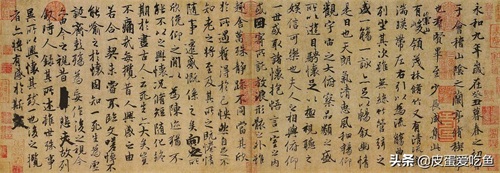 永和九年歲在癸丑暮春之初會
于會稽山陰之蘭亭脩稧事
也群賢畢至少長咸集此地
有崇山峻領茂林脩竹又有清流激
湍暎帶左右引以為流觴曲水
列坐其次雖無絲竹管弦之
盛一觴一詠亦足以暢敘幽情
是日也天朗氣清惠風和暢仰
觀宇宙之大俯察品類之盛
所以遊目騁懷足以極視聽之
娛信可樂也夫人之相與俯仰
一世或取諸懷抱悟言一室之內
或因寄所託放浪形骸之外雖
趣舍萬殊靜躁不同當其欣
於所遇蹔得於己怏然自足不
知老之將至及其所之既惓情
隨事遷感慨係之矣向之所
欣俛仰之間以為陳跡猶不
能不以之興懷況脩短隨化終
期於盡古人云死生亦大矣豈
不痛哉每攬昔人興感之由
若合一契未嘗不臨文嗟悼不
能喻之於懷固知一死生為虛
誕齊彭殤為妄作後之視今
亦由今之視昔悲夫故列
敘時人錄其所述雖世殊事
異所以興懷其致一也後之攬
者亦將有感於斯文
头条 @皮蛋爱吃鱼